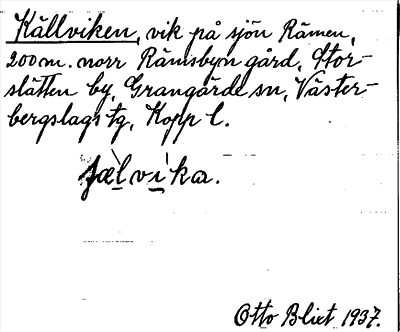 Källviken, vik på sjön Rämen,
200 m. norr Rämsbyn gård, Stor-
slätten by, Grangärde sn, Väster-
bergslags tg, Kopp l.
Otto Blixt 1937.